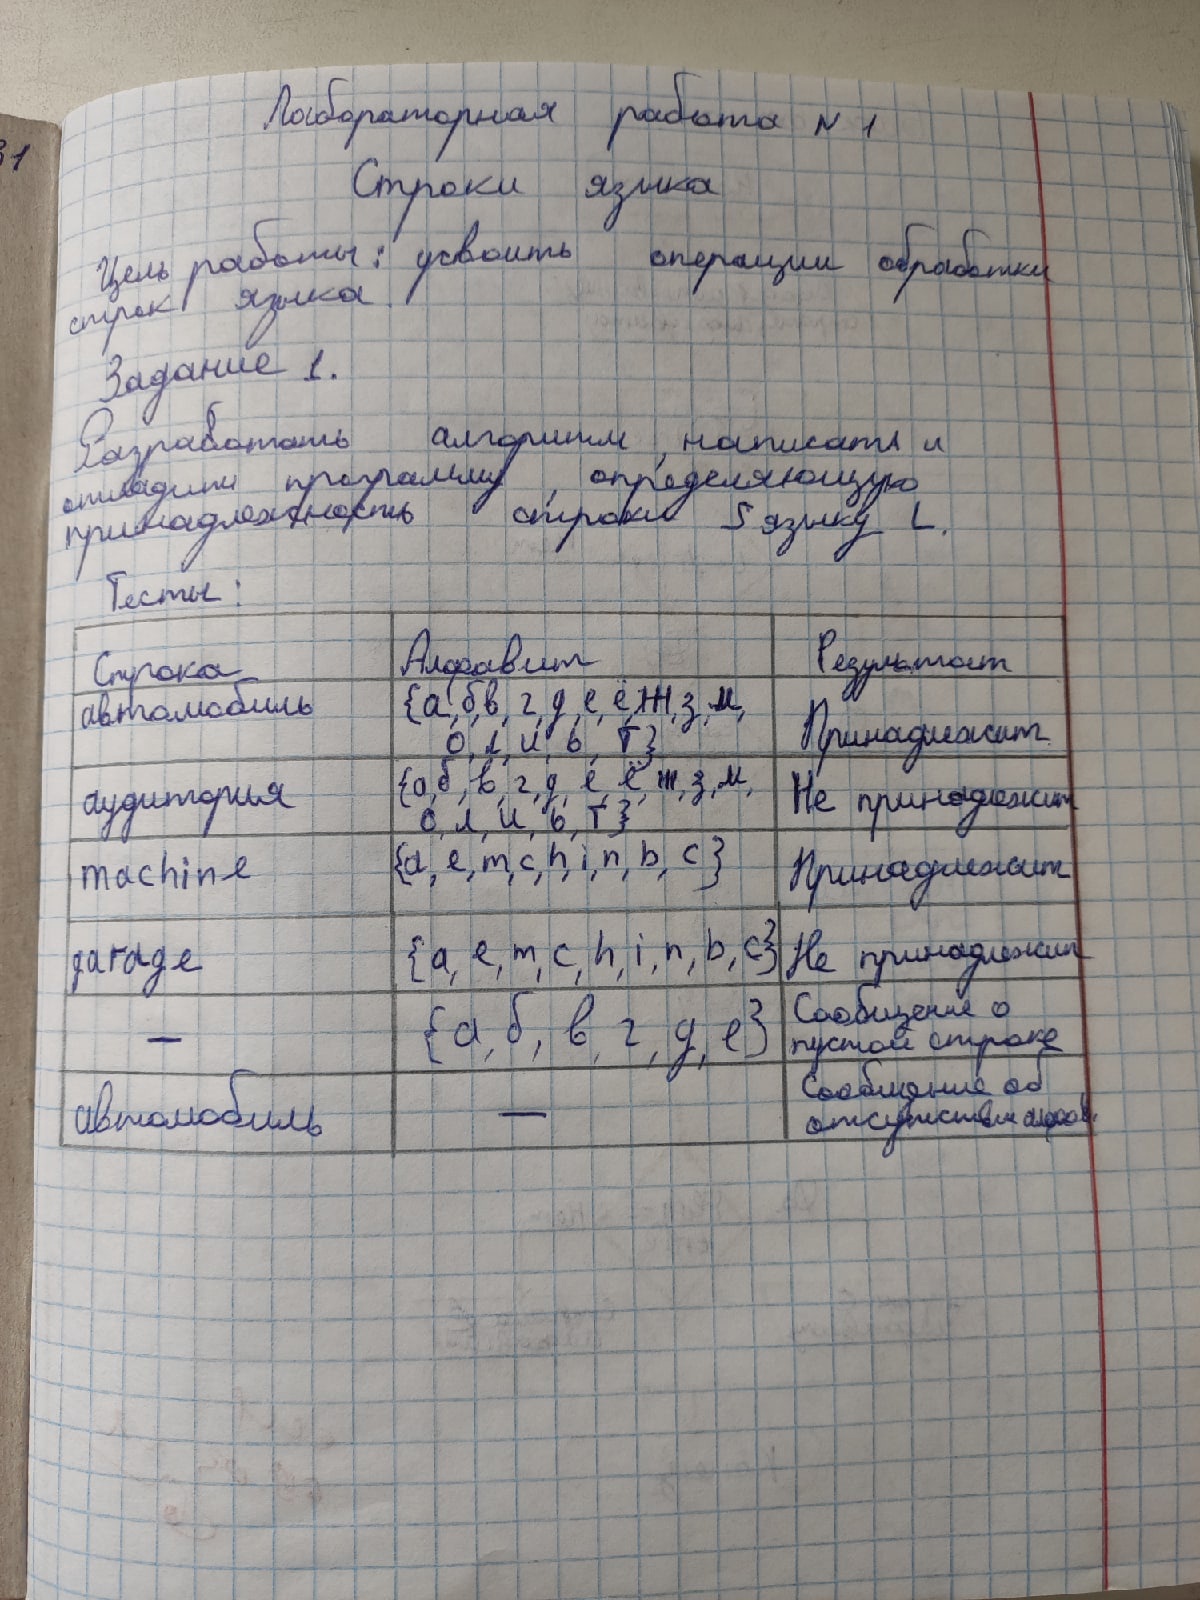 31
Лабораторная работа N 1
Строки языка
Цель работы: усвоить операции обработки
строк языка.
Задание 1.
Разработать алгоритм, написать и
отладить программу, определяющую
принадлежность строки S языку L.
Тесты:
Строка Алфавит Результат
автомобиль {а,б,в,г,д,е,ё,ж,з,м,
о,л,и,ь,т} Принадлежит
аудитория {а,б,в,г,д,е,ё,ж,з,м,
о,л,и,ь,т} Не принадлежит
machine {a,e,m,c,h,i,n,b,c} Принадлежит
garage {a,e,m,c,h,i,n,b,c} Не принадлежит
— {а,б,в,г,д,е} Сообщение о
пустой строке
автомобиль — Сообщение об
отсутствии алфав.